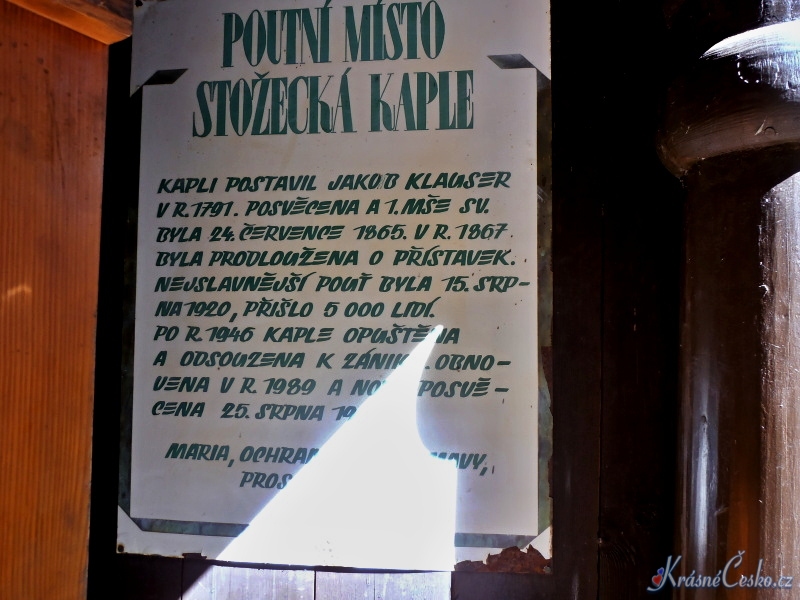 POUTNÍ MÍSTO
STOŽECKÁ KAPLE
KAPLI POSTAVIL JAKOB KLAUSER
V R. 1791. POSVĚCENA A 1. MŠE SV.
BYLA 24. ČERVENCE 1865. V R. 1867
BYLA PRODLOUŽENA O PŘÍSTAVEK.
NEJSLAVNĚJŠÍ POUŤ BYLA 15. SRP-
NA 1920, PŘIŠLO 5 000 LIDÍ.
PO R. 1946 KAPLE OPUŠTĚNA
A ODSOUZENA K ZÁNIKU. OBNO-
VENA V R. 1989 A POSVĚ-
CENA 25. SRPNA
MARIA,
KrásnéČesko.cz